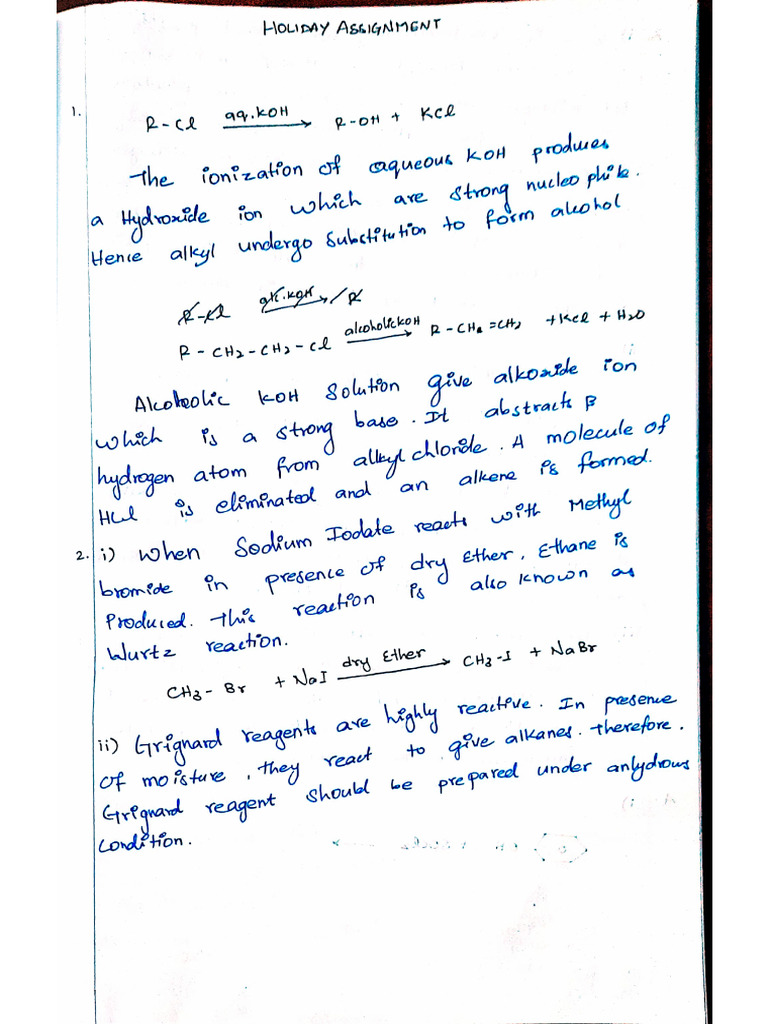 HOLIDAY ASSIGNMENT
1.
R-Cl aq.KOH → R-OH + KCl
The ionization of aqueous KOH produces
a Hydroxide ion which are strong nucleophile.
Hence alkyl undergo substitution to form alcohol
R-Cl
R-CH2-CH2-Cl alcoholic KOH → R-CH=CH2 + KCl + H2O
Alcoholic KOH solution give alkoxide ion
which is a strong base. It abstracts β
hydrogen atom from alkyl chloride. A molecule of
HCl is eliminated and an alkene is formed.
2. i) When Sodium Iodate reacts with Methyl
bromide in presence of dry Ether, Ethane is
Produced. This reaction is also known as
Wurtz reaction.
CH3-Br + NaI dry Ether → CH3-I + NaBr
ii) Grignard reagents are highly reactive. In presence
of moisture, they react to give alkanes. Therefore.
Grignard reagent should be prepared under anlydrous
condition.